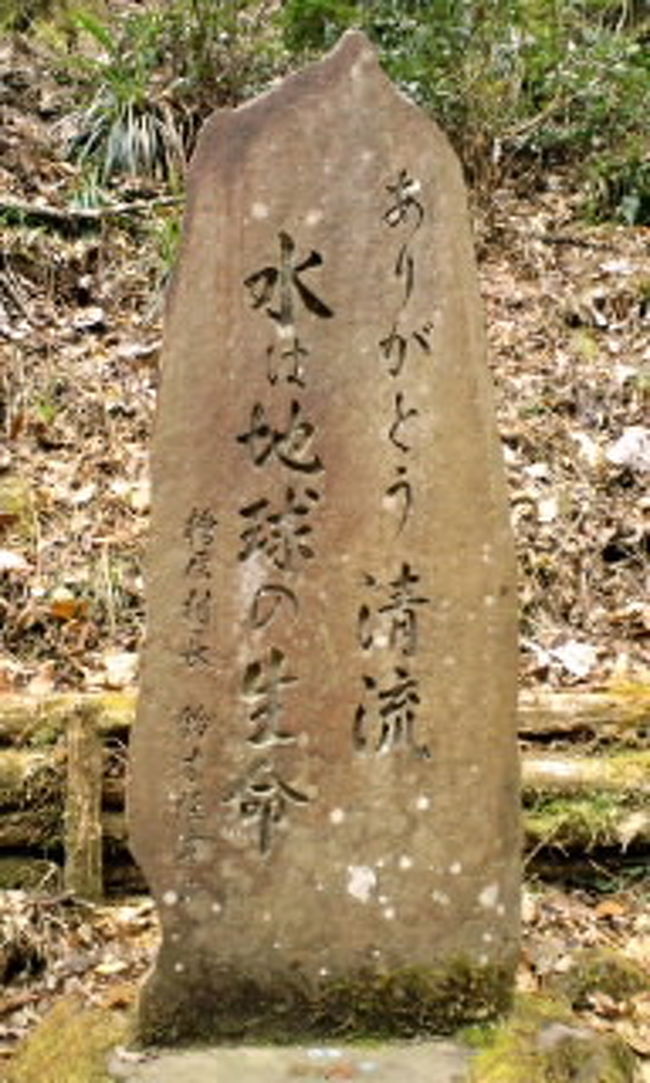 ありがとう 清流
水は地球の生命
村長 鈴木